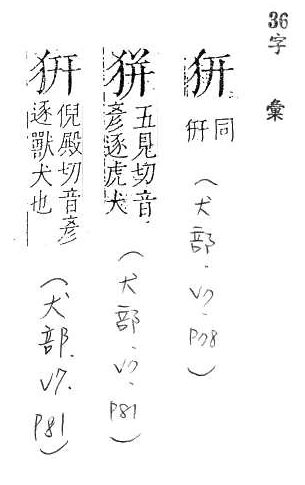 36字 彙
同
(犬部.V7.P78)
五見切音
彥逐虎犬
(犬部.V7.P81)
倪殿切音彥
逐獸犬也
(犬部.V7.P81)